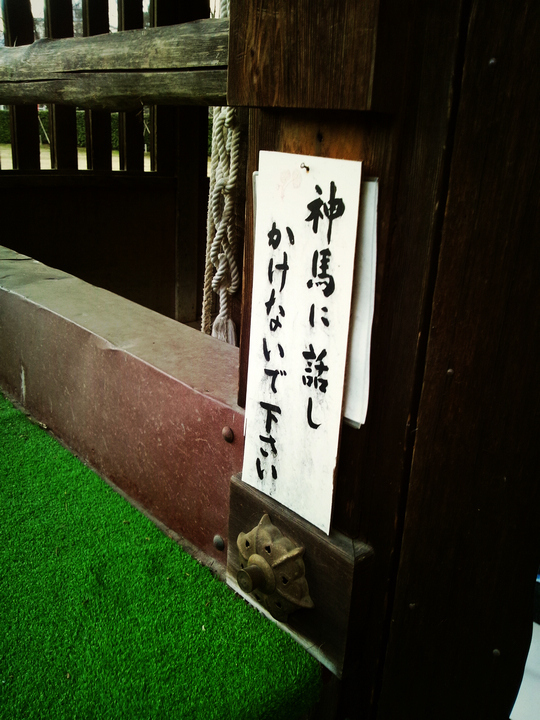 神馬に話し
かけないで下さい